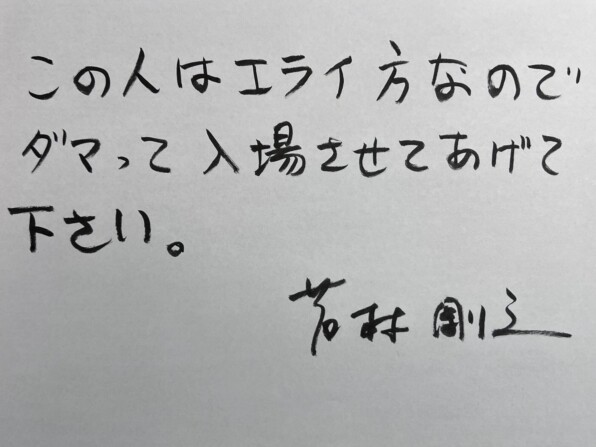 この人はエライ方なので
ダマって入場させてあげて
下さい。
若林剛之